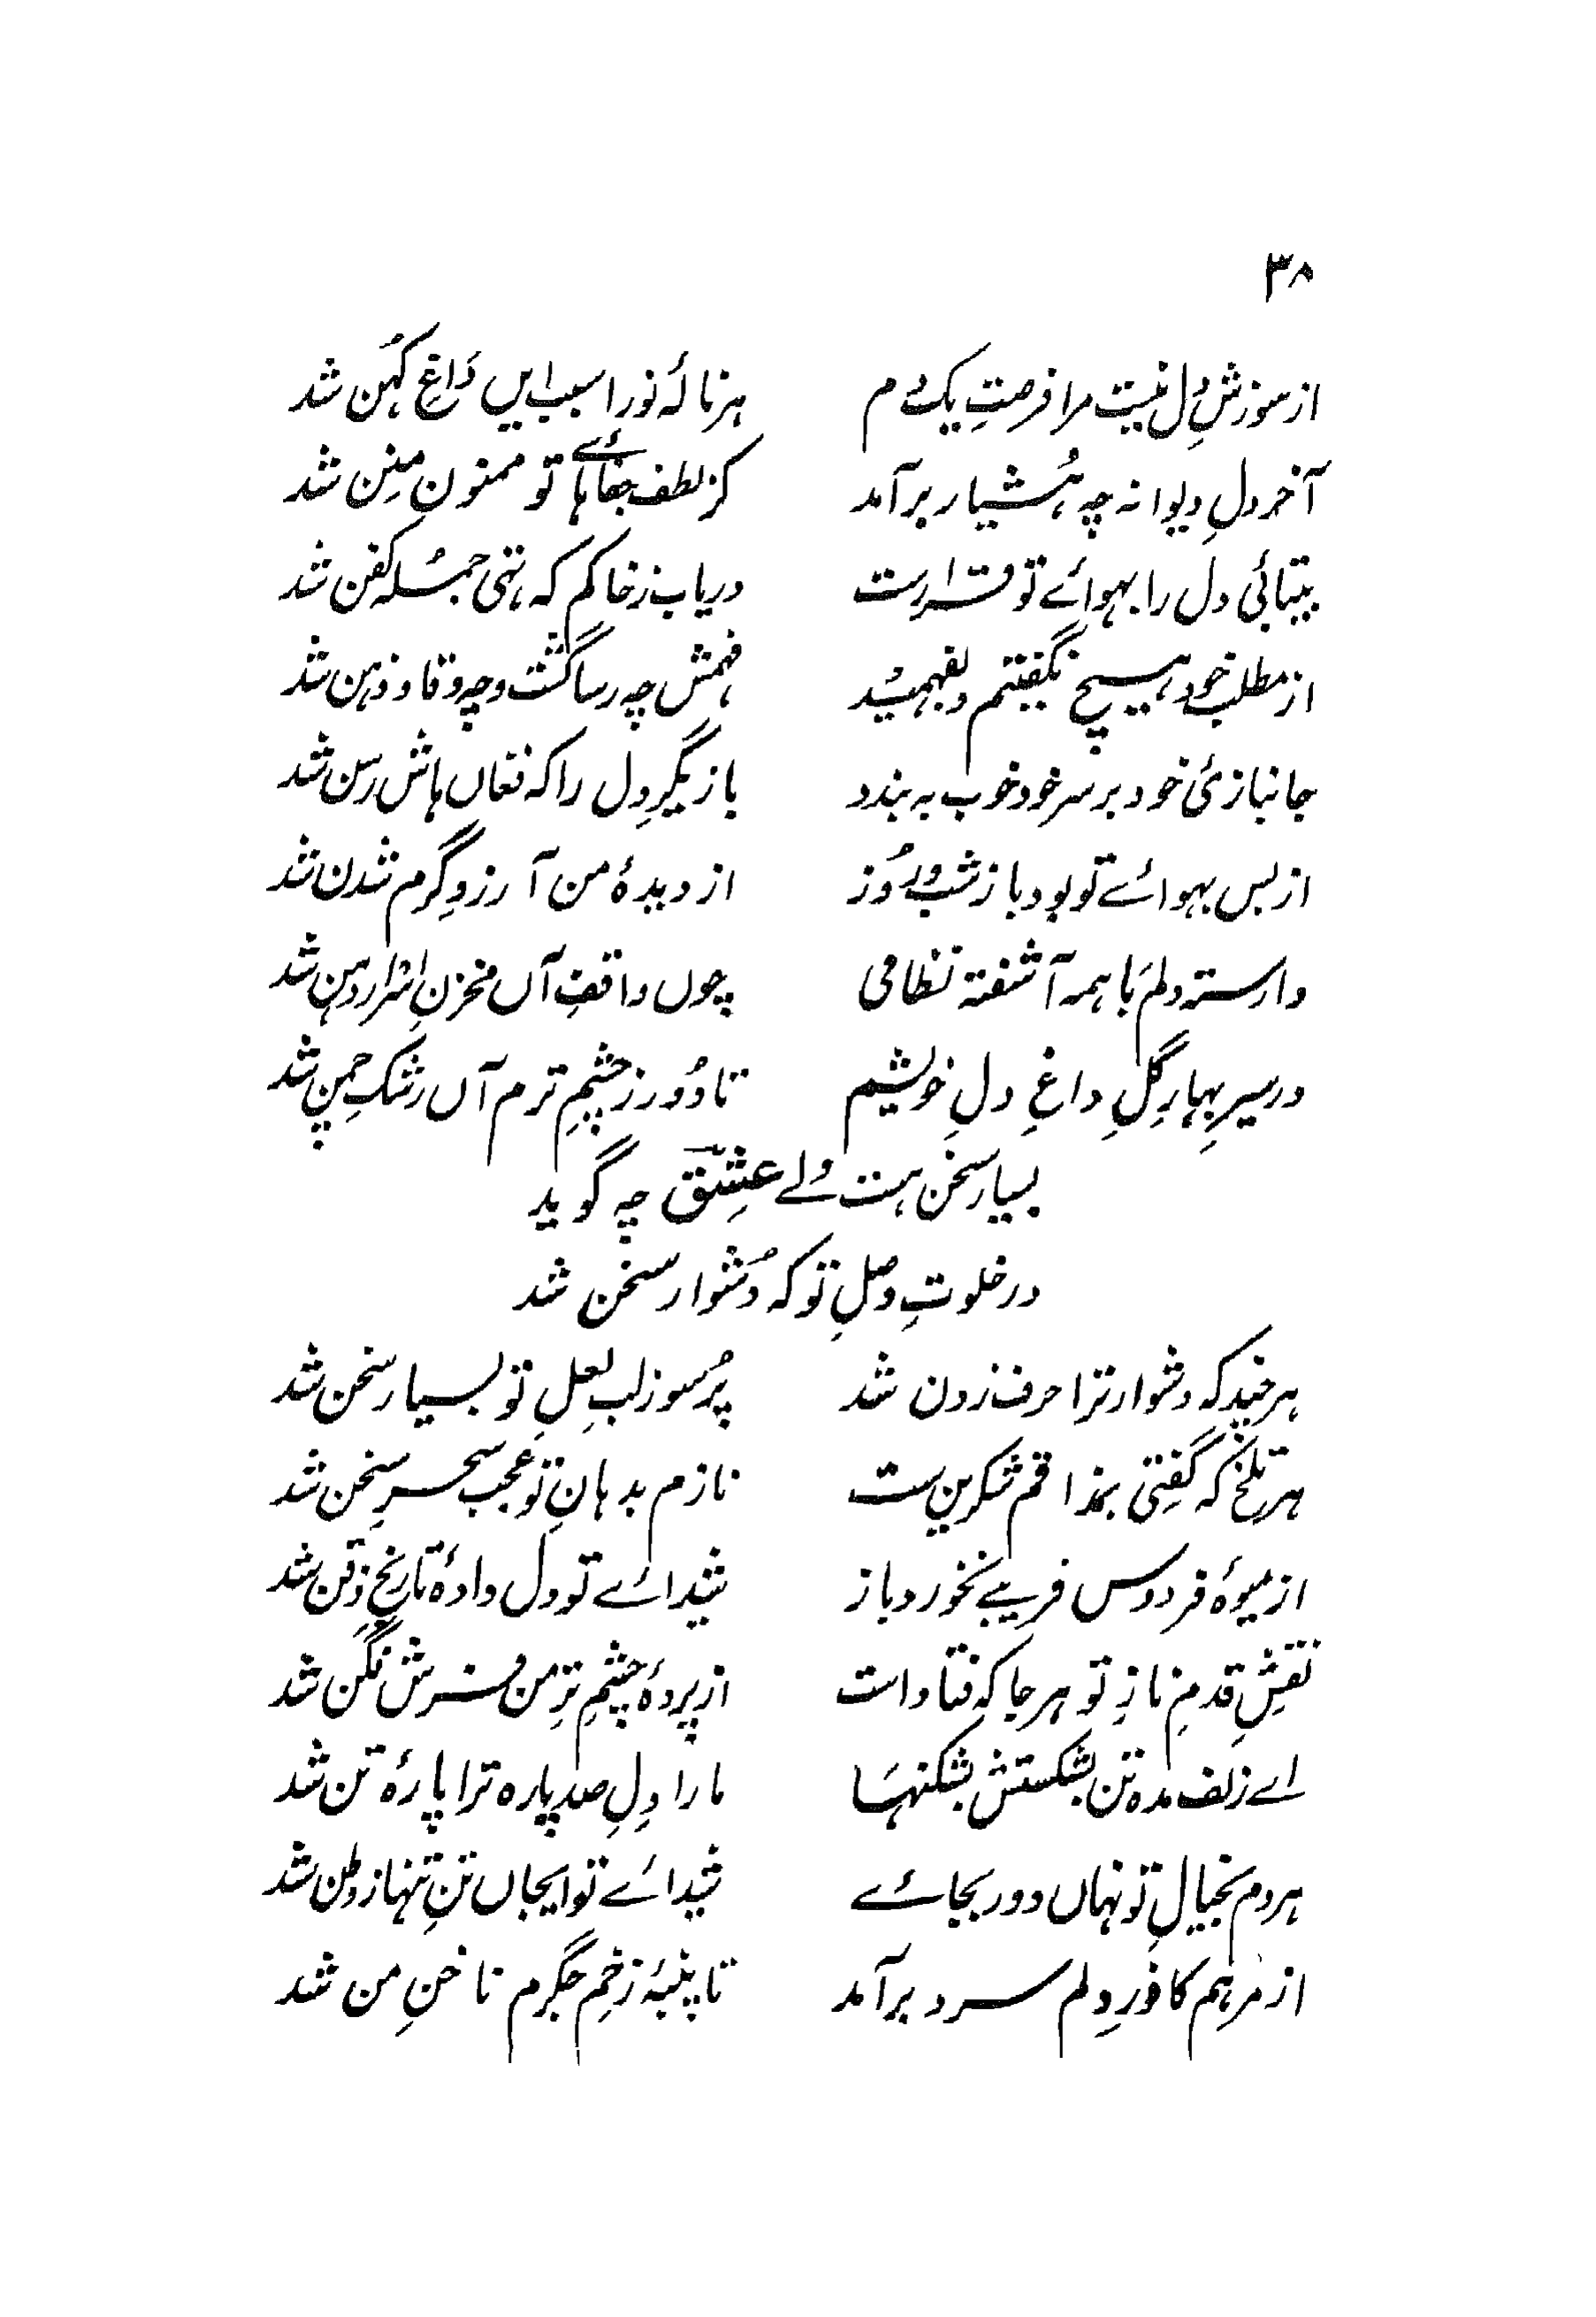 ۳۸
از سوزشِ دل نیست مرا فرصتِ یک دم هر نالۂ نو را سبب ایں داغِ کہن شد
آخر دلِ دیوانہ چہ ہُشیار برآمد کز لطف جفاہائے تو ممنونِ مِنِن شد
بیتابئی دل را بہوائے تو قرارست دریاب ز خاکم کہ تنی جملہ کفن شد
از مطلب خود ہیچ نگفتیم و بفہمید فہمش چہ رسا گشت و چہ وقاد ذہن شد
جانبازئ خود بر سر خود خوب بہ بندد بازیگرِ دل را کہ فغاں ہاش رسن شد
از بس بہوائے تو بود باز شب و روز از دیدۂ من آرزوِ گرم شدن شد
وارستہ دلم با ہمہ آشفتہ نظامی چوں واقفِ آں مخزنِ اسرار دہن شد
در سیرِ بہارِ گلِ داغِ دلِ خویشیم تا دُور ز چشمِ ترم آں رشکِ چمن شد
بسیار سخن ہست ولے عِشقؔ چہ گوید
در خلوتِ وصلِ تو کہ دُشوار سخن شد
ہر چند کہ دشوار ترا حرف زدن شد پُر سوز لبِ لعلِ تو بسیار سخن شد
ہر تلخ کہ گفتی بمذاقم شکرین ست نازم بدہانِ تو عجب سحرِ سخن شد
از میوۂ فردوس فریبے نخورد باز شیدائے تو دل دادۂ نارنجِ ذقن شد
نقشِ قدمِ نازِ تو ہر جا کہ فتاد است از پردۂ چشمِ ترِ من فرش فگن شد
اے زلف مدہ تن بشکستش بشکنہا ما را دلِ صد پارہ ترا پارۂ تن شد
ہر دم بخیالِ تو نہاں دور بجائے شیدائے تو ایجاں تنِ تنہا ز وطن شد
از مرہم کافورِ دلم سرد برآمد تا پنبۂ زخمِ جگرم ناخنِ من شد